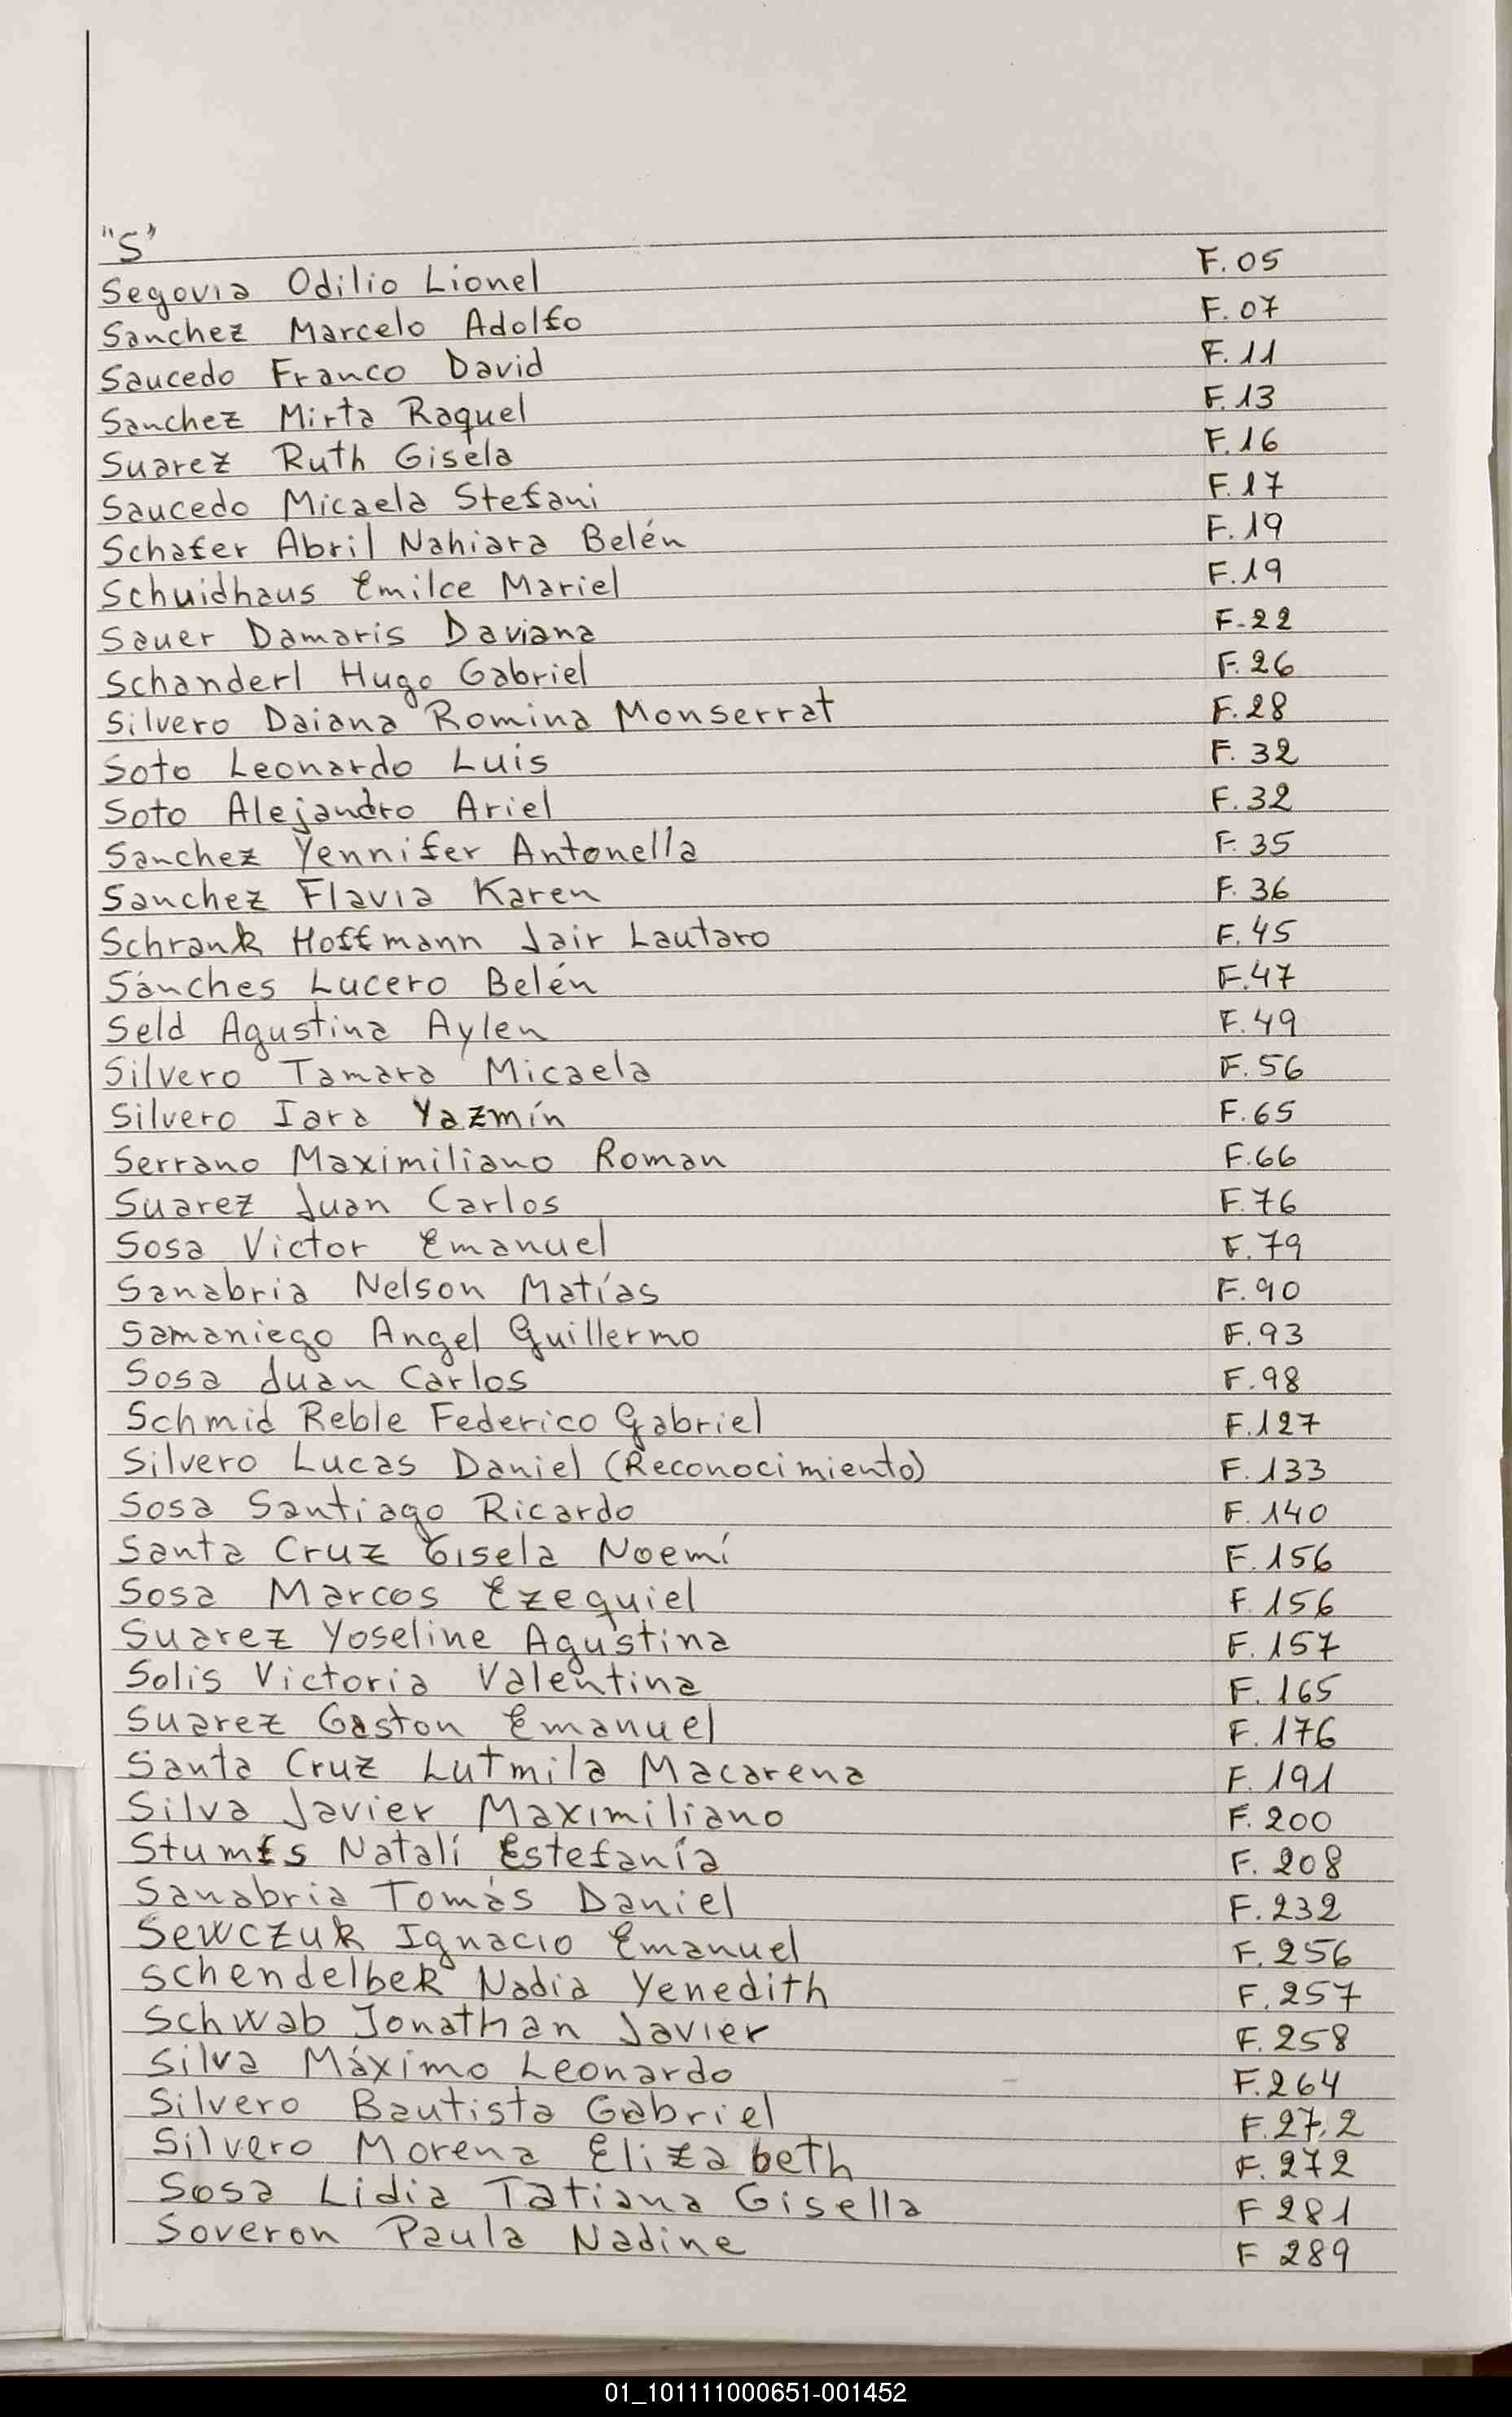 "S"
Segovia Odilio Lionel F. 05
Sanchez Marcelo Adolfo F. 07
Saucedo Franco David F. 11
Sanchez Mirta Raquel F. 13
Suarez Ruth Gisela F. 16
Saucedo Micaela Stefani F. 17
Schafer Abril Nahiara Belén F. 19
Schuidhaus Emilce Mariel F. 19
Sauer Damaris Daviana F-22
Schanderl Hugo Gabriel F. 26
Silvero Daiana Romina Monserrat F. 28
Soto Leonardo Luis F. 32
Soto Alejandro Ariel F. 32
Sanchez Yennifer Antonella F. 35
Sanchez Flavia Karen F. 36
Schrank Hoffmann Jair Lautaro F. 45
Sánches Lucero Belén F. 47
Seld Agustina Aylen F. 49
Silvero Tamara Micaela F. 56
Silvero Iara Yazmín F. 65
Serrano Maximiliano Roman F. 66
Suarez Juan Carlos F. 76
Sosa Victor Emanuel F. 79
Sanabria Nelson Matías F. 90
Samaniego Angel Guillermo F. 93
Sosa Juan Carlos F. 98
Schmid Reble Federico Gabriel F. 127
Silvero Lucas Daniel (Reconocimiento) F. 133
Sosa Santiago Ricardo F. 140
Santa Cruz Gisela Noemí F. 156
Sosa Marcos Ezequiel F. 156
Suarez Yoseline Agustina F. 157
Solis Victoria Valentina F. 165
Suarez Gaston Emanuel F. 176
Santa Cruz Lutmila Macarena F. 191
Silva Javier Maximiliano F. 200
Stumfs Natalí Estefanía F. 208
Sanabria Tomás Daniel F. 232
Sewczuk Ignacio Emanuel F. 256
Schendelbek Nadia Yenedith F. 257
Schwab Jonathan Javier F. 258
Silva Máximo Leonardo F. 264
Silvero Bautista Gabriel F. 272
Silvero Morena Elizabeth F. 272
Sosa Lidia Tatiana Gisella F 281
Soveron Paula Nadine F 289
01_101111000651-001452